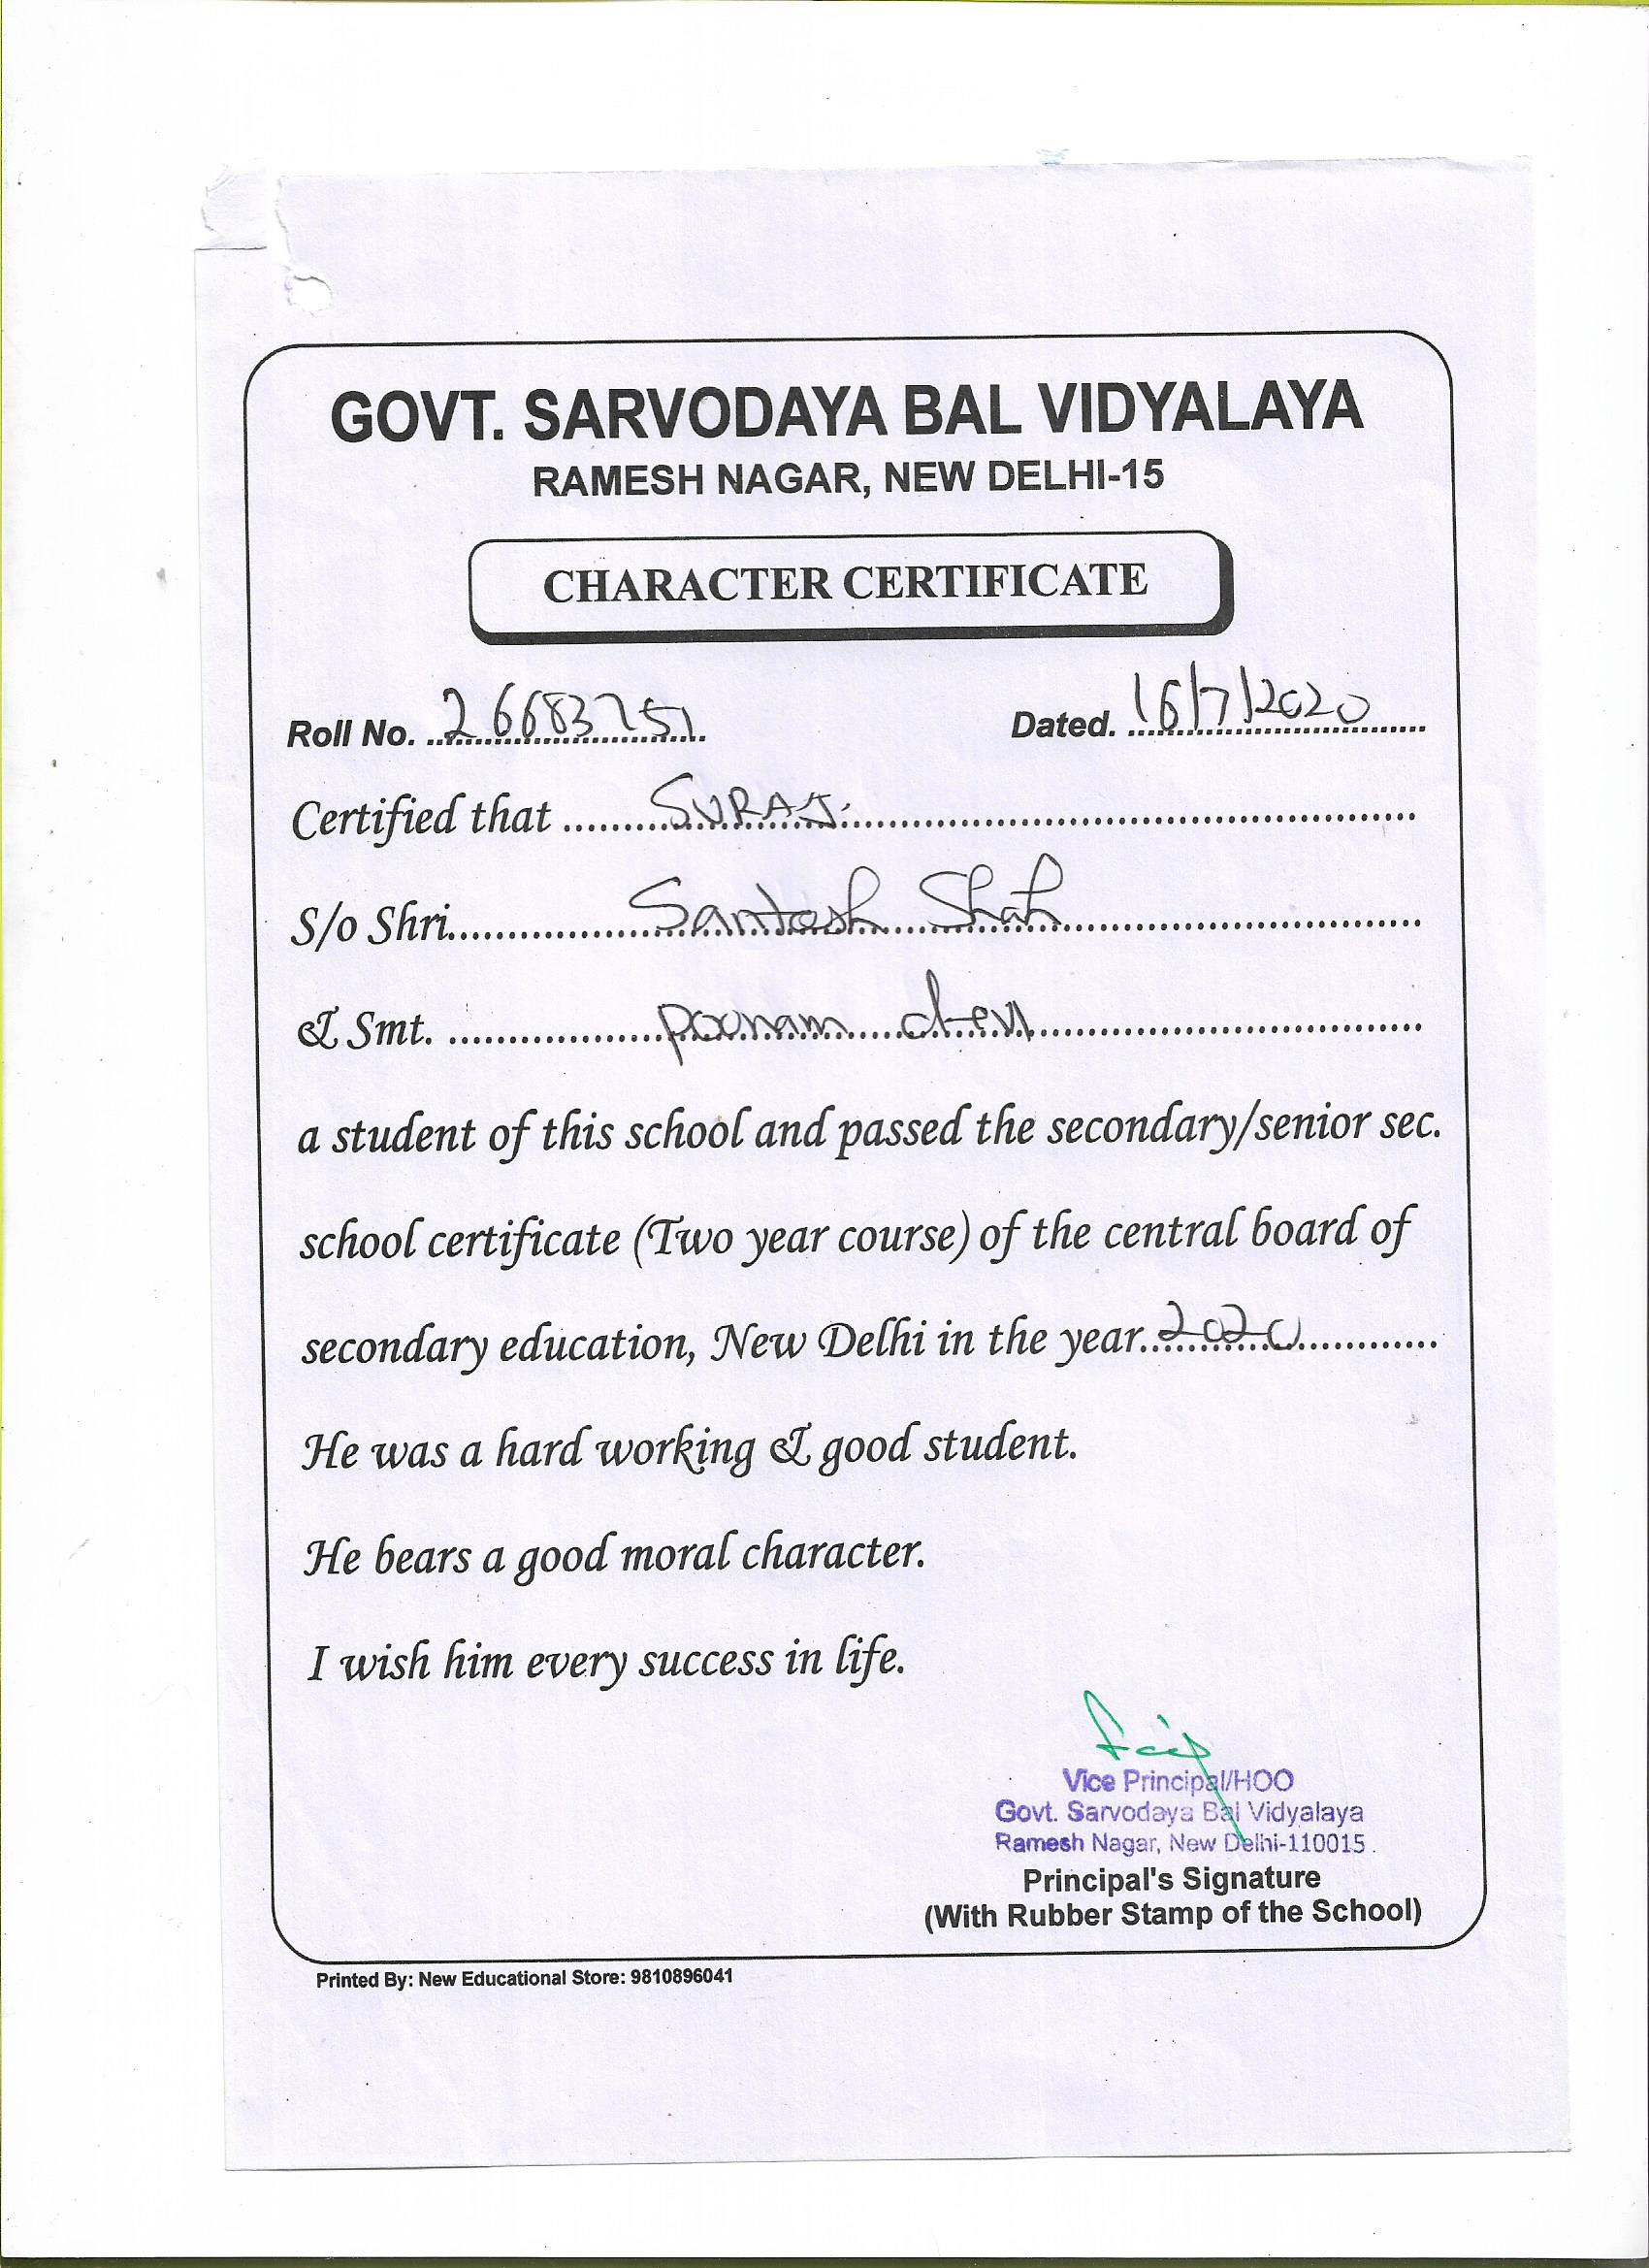 GOVT. SARVODAYA BAL VIDYALAYA
RAMESH NAGAR, NEW DELHI-15
CHARACTER CERTIFICATE
Roll No. 26683751 Dated. 16/7/2020
Certified that SURAJ.
S/o Shri Santosh Shah
& Smt. poonam devi
a student of this school and passed the secondary/senior sec.
school certificate (Two year course) of the central board of
secondary education, New Delhi in the year 2020
He was a hard working & good student.
He bears a good moral character.
I wish him every success in life.
Vice Principal/HOO
Govt. Sarvodaya Bal Vidyalaya
Ramesh Nagar, New Delhi-110015.
Principal's Signature
(With Rubber Stamp of the School)
Printed By: New Educational Store: 9810896041